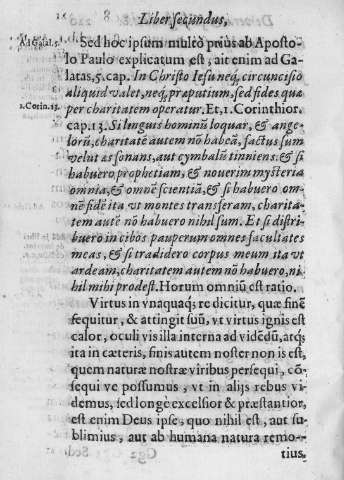 Liber secundus,
Ad Galat. 5. Sed hoc ipsum multò prius ab Aposto
lo Paulo explicatum est, ait enim ad Ga
latas, 5. cap. In Christo Iesu neq, circuncisio
aliquid valet, neq, præputium, sed fides quæ
1. Corin. 13. per charitatem operatur. Et, 1. Corinthior.
cap. 13. Si linguis hominũ loquar, & ange-
lorũ, charitatẽ autem nõ habeã, factus sum
velut æs sonans, aut cymbalũ tinniens. & si
habuero prophetiam, & nouerim mysteria
omnia, & omnẽ scientiã, & si habuero om-
nẽ fidẽ ita vt montes transferam, charita-
tem autẽ nõ habuero nihil sum. Et si distri
buero in cibos pauperum omnes facultates
meas, & si tradidero corpus meum ita vt
ardeam, charitatem autem nõ habuero, ni-
hil mihi prodest. Horum omniũ est ratio.
Virtus in vnaquaqȝ re dicitur, quæ finẽ
sequitur, & attingit suũ, vt virtus ignis est
calor, oculi vis illa interna ad vidẽdũ, atqȝ
ita in cæteris, finis autem noster non is est,
quem naturæ nostræ viribus persequi, cõ-
sequi ve possumus, vt in alijs rebus vi
demus, sed longè excelsior & præstantior,
est enim Deus ipse, quo nihil est, aut su-
blimius, aut ab humana natura remo-
tius.